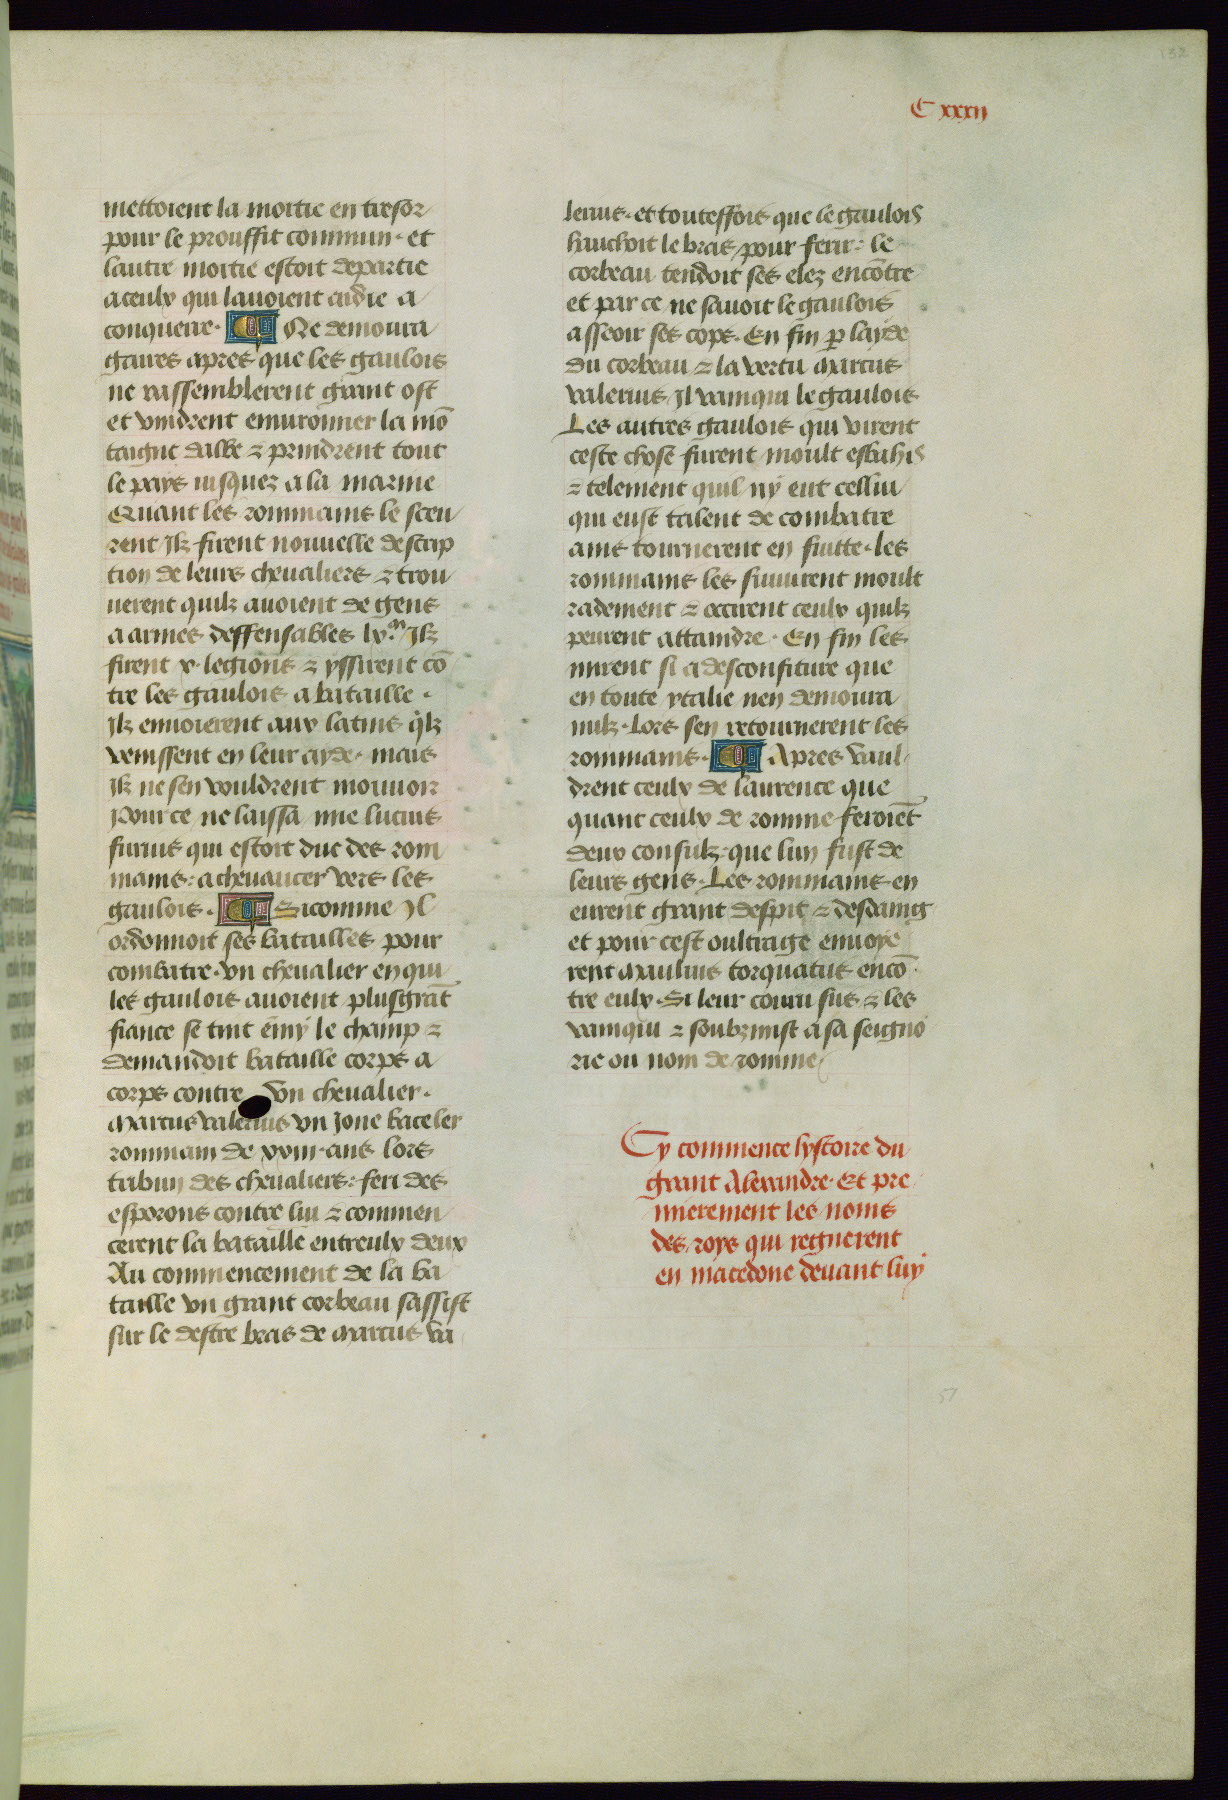 132
C xxxij
mettoient la moitie en tresor
pour le prouffit commun· et
lautre moitie estoit departie
a ceulx qui lauoient aidie a
conquerre· Ne demoura
gaires apres que les gaulois
ne rassemblerent grant ost
et vindrent enuironner la mō
taigne dalbe ⁊ prindrent tout
le pays iusquez a la marine
Quant les rommains le sceu
rent Ilz firent nouuelle descrip
tion de leurs cheualiers ⁊ trou
uerent quilz auoient de gens
a armes deffensables lx.ᵐ Ilz
firent x· legions ⁊ yssirent cō
tre les gaulois a bataille·
Ilz enuoierent aux latins q̃lz
venissent en leur ayde· mais
Ilz ne sen vouldrent mouuoir
Pour ce ne laissa mie lucius
furius qui estoit duc des rom
mains: a cheuaucer vers les
gaulois· Sicomme Il
ordonnoit ses batailles pour
combatre· vn cheualier en qui
les gaulois auoient plusgrāt
fiance se tint ēmy le champ ⁊
demandoit bataille corps a
corps contre vn cheualier·
Marcus valerius vn Jone baceler
rommain de xxiii· ans lors
tribun des cheualiers: feri des
esporons contre lui ⁊ commen
cerent la bataille entreulx deux
Au commencement de la ba
taille vn grant corbeau sassist
sur le destre bras de marcus va
lerius· et touteffois que le gaulois
hauchoit le bras pour ferir: le
corbeau tendoit ses elez encōtre
et par ce ne sauoit le gaulois
asseoir ses cops· En fin p̱ layde
du corbeau ⁊ la vertu marcus
valerius Il vainqui le gaulois
Les autres gaulois qui virent
ceste chose furent moult esbahis
⁊ telement quil ny eut cellui
qui eust talent de combatre
ains tournerent en fuitte· les
rommains les suiuirent moult
radement ⁊ occirent ceulx quilz
peurent attaindre· En fin les
mirent si a desconfiture que
en toute ytalie nen demoura
nulz· Lors sen retournerent les
rommains· Apres vaul
drent ceulx de laurence que
quant ceulx de romme feroiēt
deux consulz: que lun fust de
leurs gens· Les rommains en
eurent grant despit ⁊ desdaing
et pour cest oultrage enuoye
rent Maulius torquatus encō
tre eulx· Si leur couru sus ⁊ les
vainqui ⁊ soubzmist a sa seigno
rie ou nom de romme
Cy commence lystoire du
grant Alexandre· Et pre
mierement les noms
des roys qui regnerent
en macedone deuant luy
51